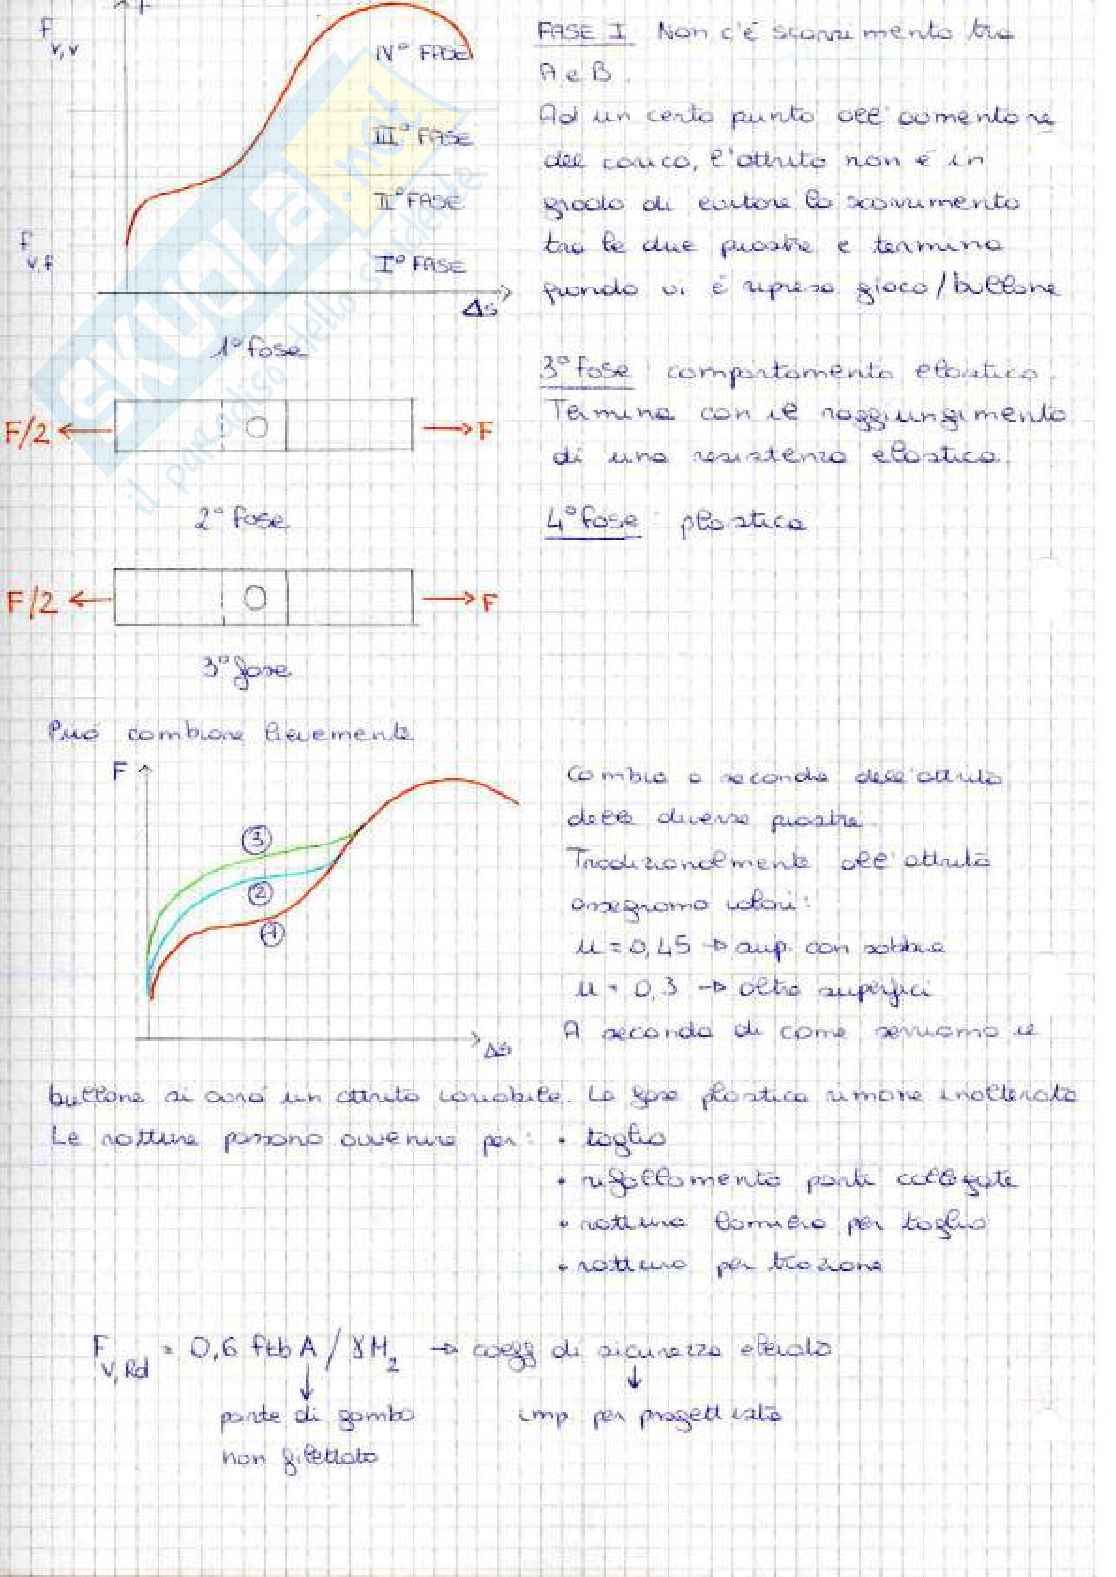 F
F v,v
IV° FASE
III° FASE
II° FASE
I° FASE
F v,f
Δs
SKUOLA.net
il paradiso dello studente
FASE I Non c'é scorrimento tra
A e B.
Ad un certo punto all'aumentare
del carico, l'attrito non é in
grado di evitare lo scorrimento
tra le due piastre e termina
quando vi é ripresa gioco/bullone
3° fase: comportamento elastico.
Termina con il raggiungimento
di una resistenza elastica.
4° fase: plastica
1° fase
F/2
F
2° fase
F/2
F
3° fase
Può cambiare lievemente
F
3
2
1
Δs
Cambia a seconda dell'attrito
delle diverse piastre.
Tradizionalmente all'attrito
assegnamo valori:
μ = 0,45 → sup. con sabbia
μ = 0,3 → altre superfici
A seconda di come serriamo il
bullone si avrà un attrito variabile. La fase plastica rimane inalterata
Le rotture possono avvenire per: • taglio
• rifollamento parti collegate
• rottura lamiera per taglio
• rottura per trazione
F v,Rd = 0,6 ftb A / γM2 → coeff di sicurezza elevato
parte di gambo
imp per progettista
non filettato